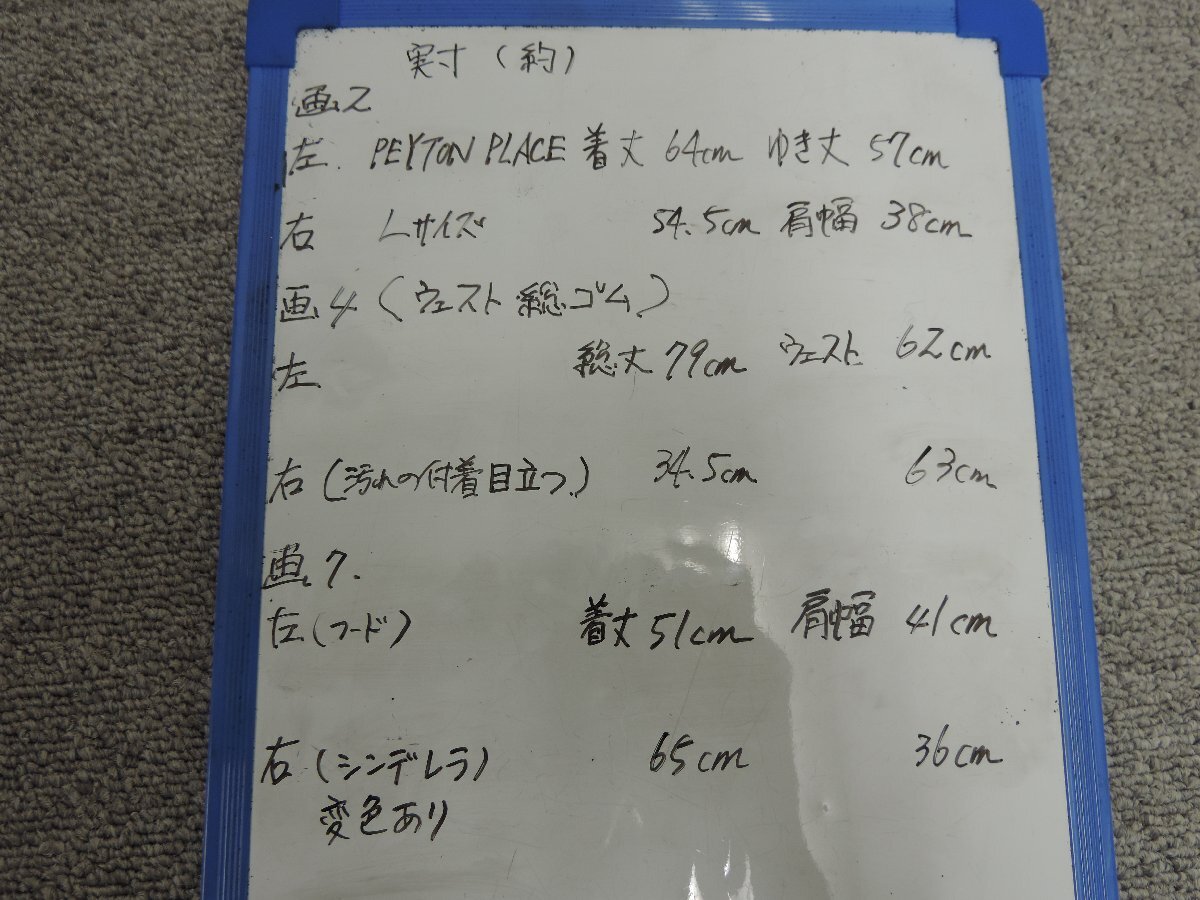 実寸(約)
画2
左 PEYTON PLACE 着丈 64cm ゆき丈 57cm
右 Lサイズ 54.5cm 肩幅 38cm
画4(ウェスト総ゴム)
左 総丈 79cm ウェスト 62cm
右(汚れの付着目立つ) 34.5cm 63cm
画7.
左(フード) 着丈 51cm 肩幅 41cm
右(シンデレラ) 65cm 36cm
変色あり